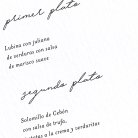 primer plato
Lubina con juliana
de verduras con salsa
de marisco suave
segundo plato
Solomillo de Cebón
con salsa de trufa,
a la crema y verduritas